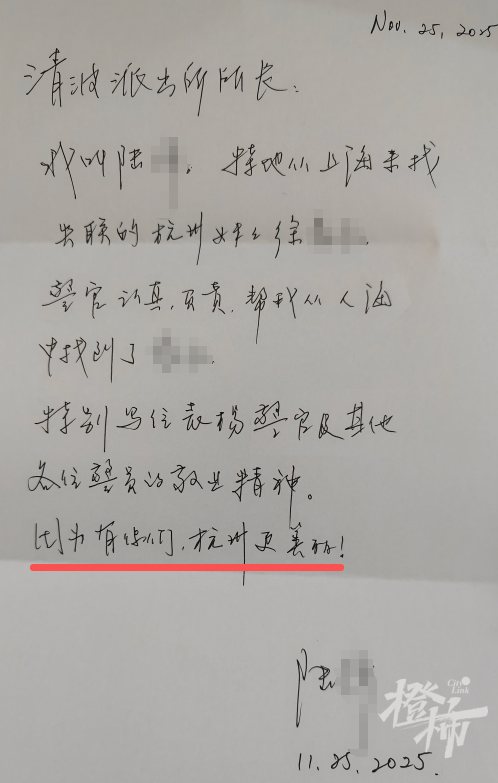 Nov. 25, 2025
清波派出所所长：
我叫陆 。特地从上海来找
失联的杭州女士徐 .
警官认真，负责，帮我从人海
中找到了 .
特别写信表扬警官及其他
各位警员的敬业精神。
因为有你们，杭州更美丽！
陆
11.25.2025.
City Link
橙柿